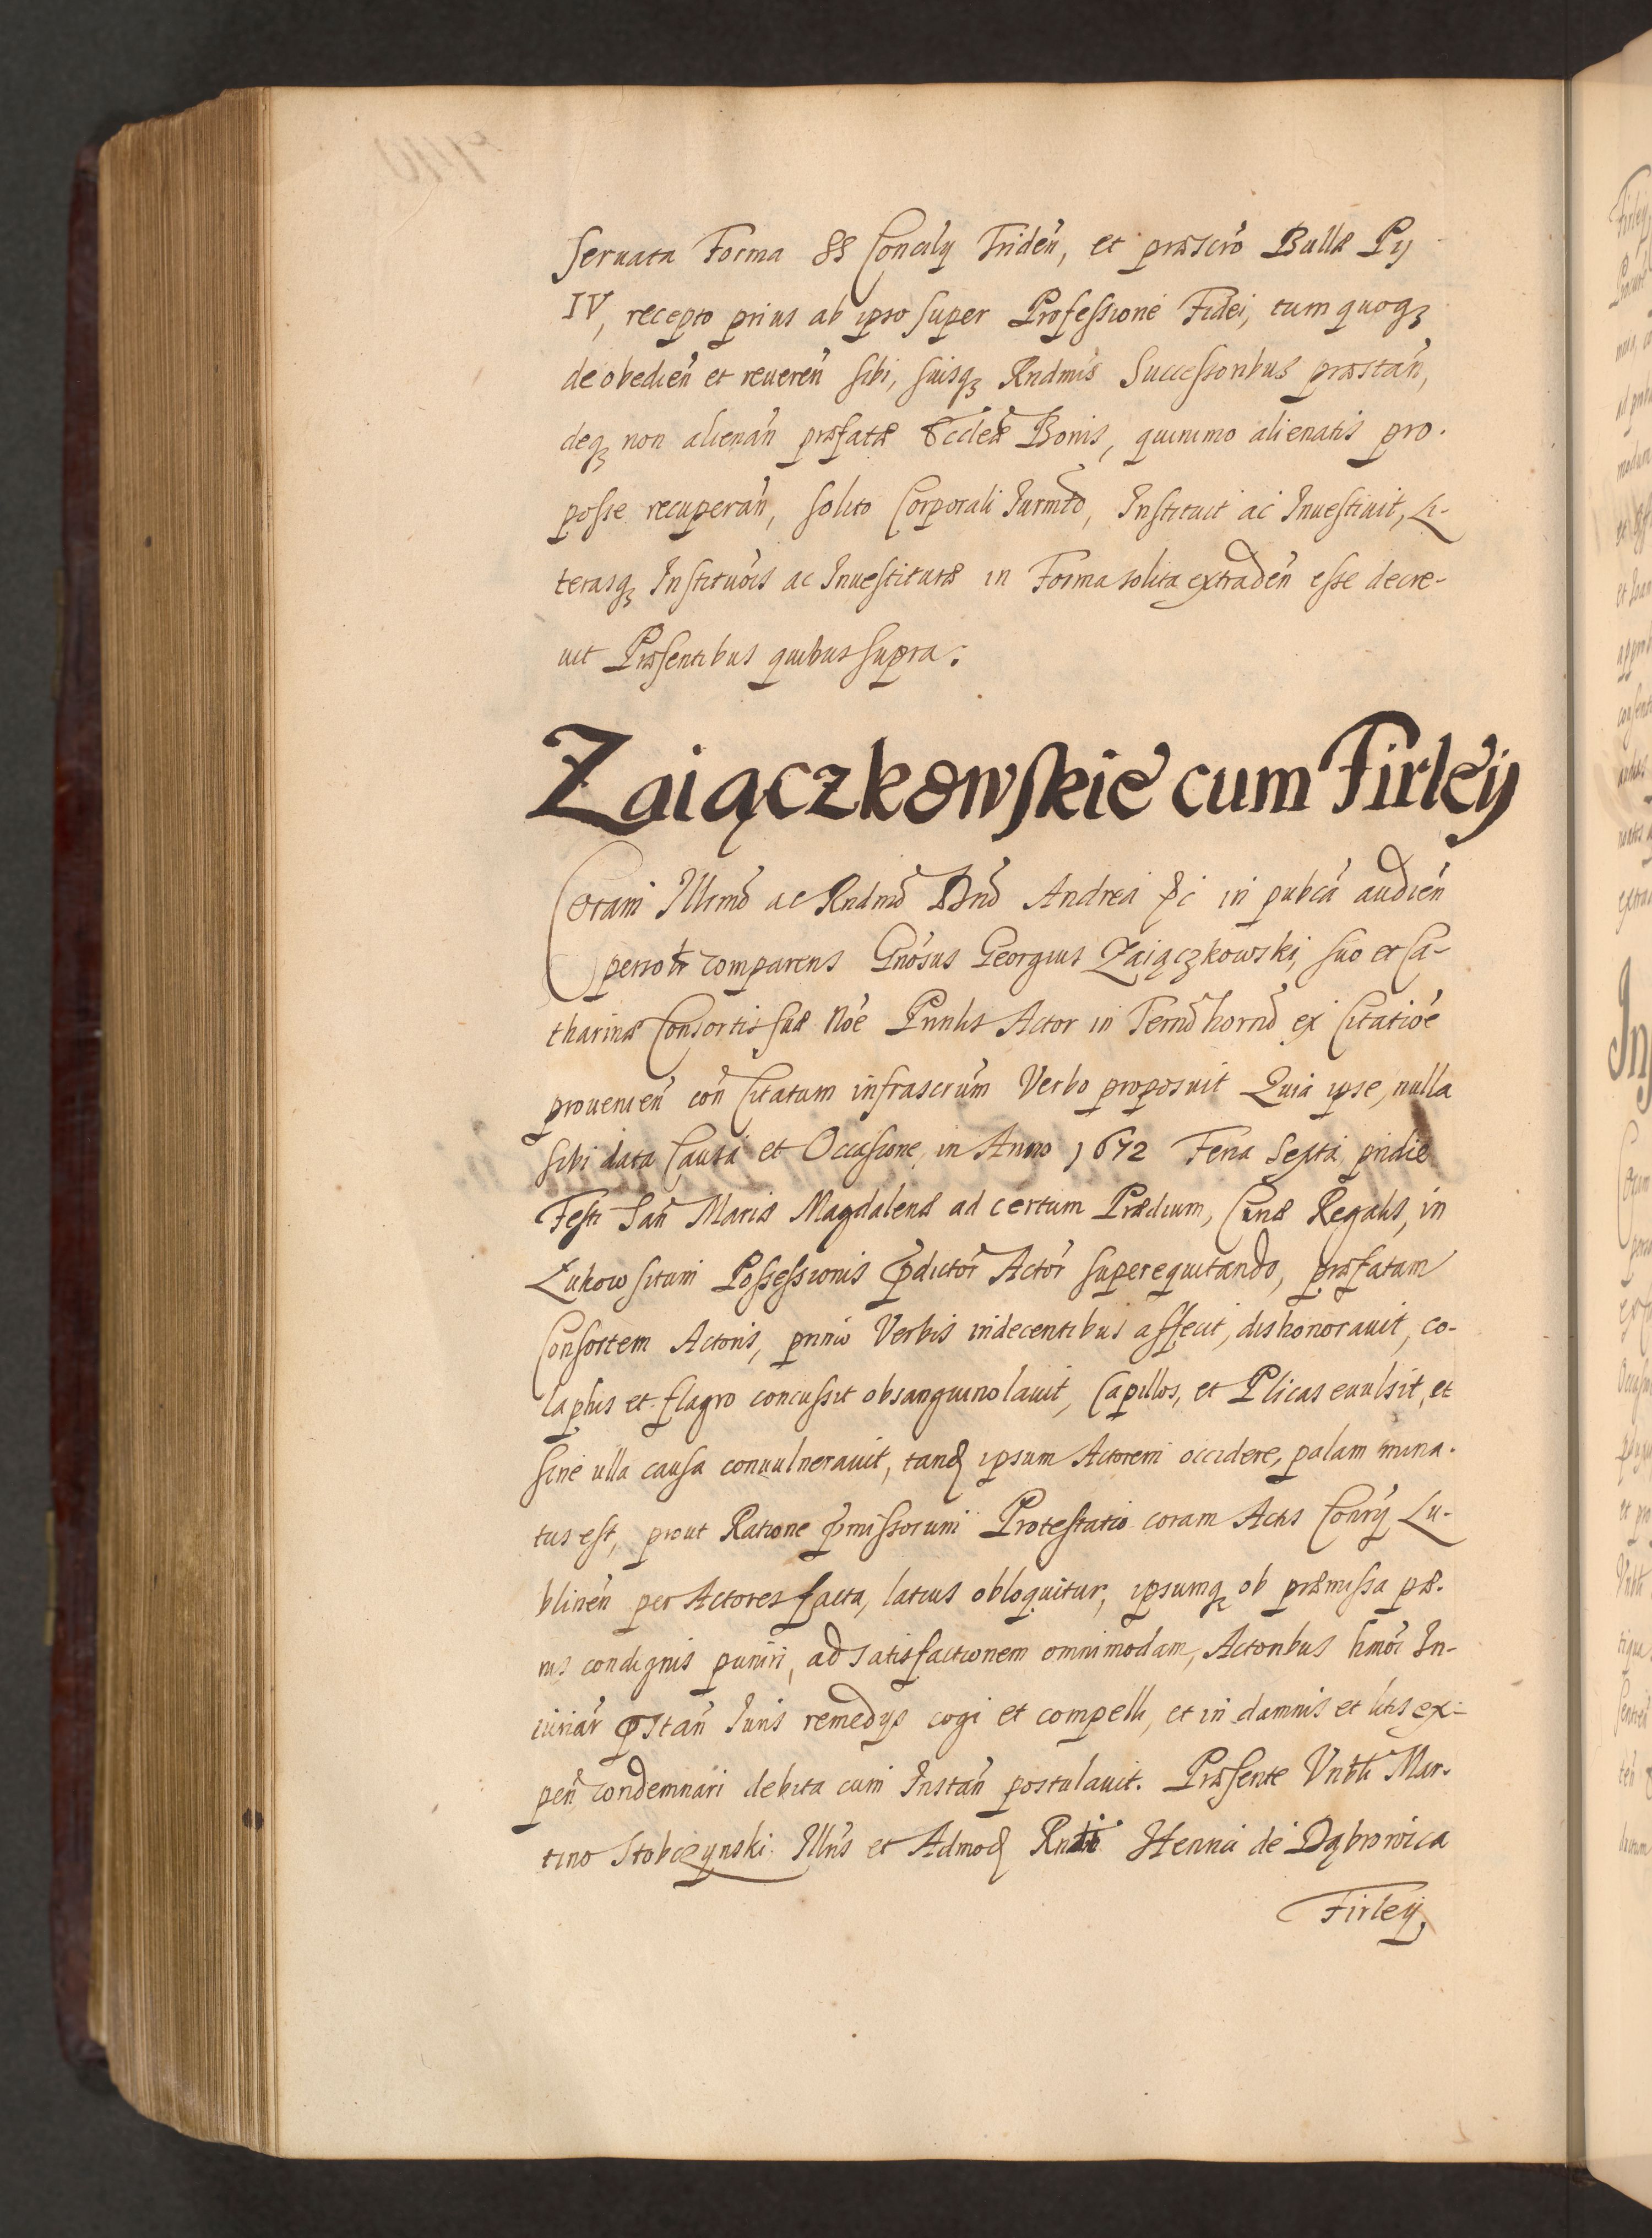 Seruata Forma SS Concilij Triden, et præscro Bullæ Pij
IV, recepto prius ab ipso super Professione Fidei, tum quoqꝫ
de obedien et reueren sibi, suisqꝫ Rndmis Successoribus præstan,
deqꝫ non alienan præfatæ Eccleæ Bonis, quinimo alienatis pro
posse recuperan, solito Corporali Iurmto, Instituit ac Inuestiuit, Li-
terasqꝫ Institutois ac Inuestituræ in Forma solita extraden esse decre-
uit Præsentibus quibus supra.
Zaiączkowskie cum Firleij
Coram Illmo ac Rndmo Dno Andrea &c in pubca audien
persotr comparens Gnosus Georgius Zaiączkowski, suo et Ca-
tharinæ Consortis suæ Noe Prinlis Actor in Termo horno ex Citatioe
prouenien con Citatum infrascrum Verbo proposuit Quia ipse, nulla
sibi data Causa et Occasione, in Anno 1672 Feria Sexta pridie
Festi San Mariæ Magdalenæ ad certum Prædium, Cunæ Regalis, in
Lukow situm Possessionis pdictor Actor superequitando, præfatam
Consortem Actoris, primo Verbis indecentibus affecit, dishonorauit, co-
laphis et flagro concussit obsanguinolauit, Capillos, et Plicas euulsit, et
sine ulla causa conuulnerauit, tandem ipsum Actorem occidere, palam mina-
tus est, prout Ratione pmissorum Protestatio coram Actis Conrij Lu-
blinen per Actores facta, latius obloquitur, ipsumqꝫ ob præmissa pæ-
nis condignis puniri, ad satisfactionem omnimodam, Actoribus hmoi In-
iuriar pstan Iuris remedijs cogi et compelli, et in damnis et litis ex-
pen condemnari debita cum Instan postulauit. Præsente Vnbli Mar-
tino Stobczynski Illris et Admod Rndi Henrici de Dąbrowica
Firleij,